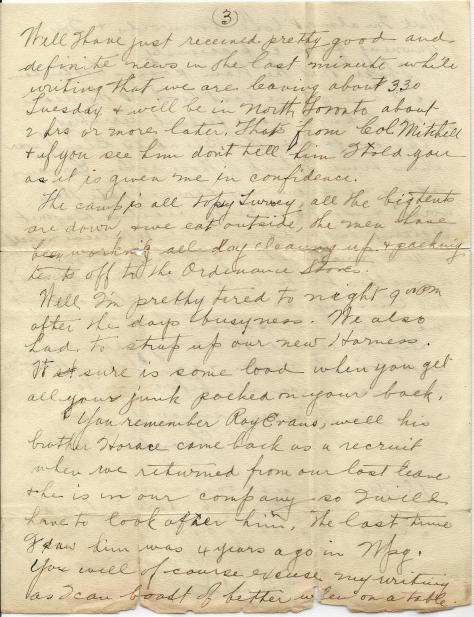 (3)
Well I have just received pretty good and
definite news in the last minute while
writing that we are leaving about 330
Tuesday & will be in North Toronto about
2 hrs or more later. That from Col Mitchell
& if you see him dont tell him I told you
as it is given me in confidence.
The camp is all topsy turvey, all the big tents
are down, & we eat outside, the men have
been working all day cleaning up & packing
tents off to the Ordenance Stores.
Well I'm pretty tired to night
after the days busyness. We also
had to strap up our new Harness.
It sure is some load when you get
all your junk packed on your back.
You remember Roy Evans, well his
brother Horace came back as a recruit
when we returned from our last leave
& he is in our company so I will
have to look after him. The last time
I saw him was 4 years ago in Wpg.
You will of course excuse my writing
as I can boast of better when on a table.